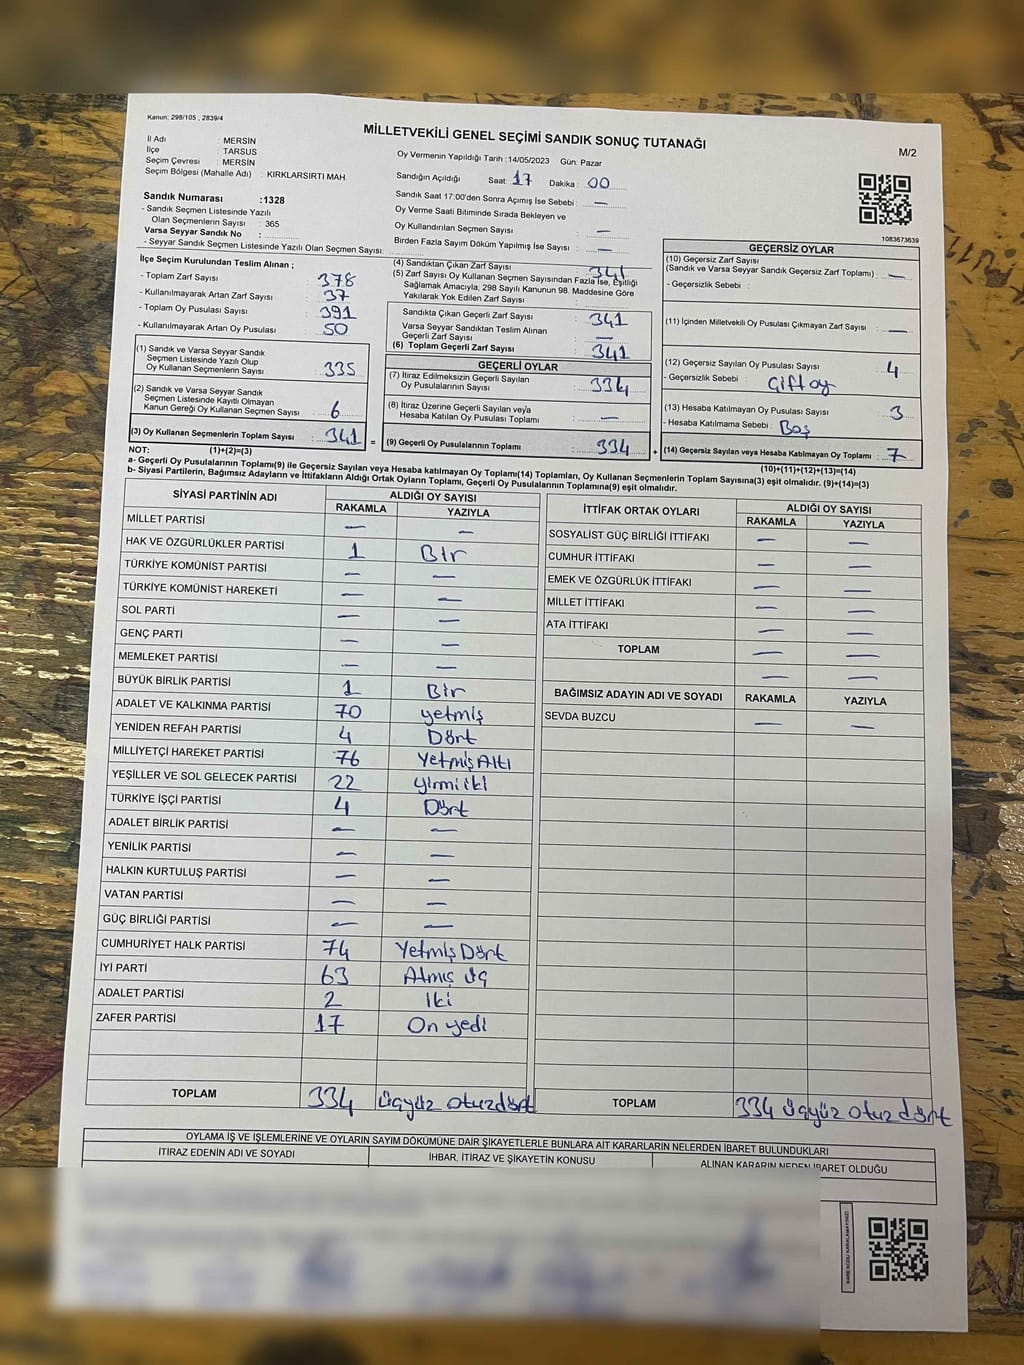 Kanun: 298/105 , 2839/4
MİLLETVEKİLİ GENEL SEÇİMİ SANDIK SONUÇ TUTANAĞI
M/2
İl Adı : MERSİN
İlçe : TARSUS
Seçim Çevresi : MERSİN
Seçim Bölgesi (Mahalle Adı) : KIRKLARSIRTI MAH.
Oy Vermenin Yapıldığı Tarih : 14/05/2023 Gün: Pazar
Sandığın Açıldığı Saat: 17 Dakika : 00
Sandık Saat 17:00'den Sonra Açımış İse Sebebi : —
Oy Verme Saati Bitiminde Sırada Bekleyen ve
Oy Kullandırılan Seçmen Sayısı : —
Birden Fazla Sayım Döküm Yapılmış İse Sayısı : —
Sandık Numarası :1328
- Sandık Seçmen Listesinde Yazılı
Olan Seçmenlerin Sayısı : 365
Varsa Seyyar Sandık No :
- Seyyar Sandık Seçmen Listesinde Yazılı Olan Seçmen Sayısı:
1083673639
İlçe Seçim Kurulundan Teslim Alınan ;
- Toplam Zarf Sayısı : 378
- Kullanılmayarak Artan Zarf Sayısı : 37
- Toplam Oy Pusulası Sayısı : 391
- Kullanılmayarak Artan Oy Pusulası : 50
(1) Sandık ve Varsa Seyyar Sandık
Seçmen Listesinde Yazılı Olup
Oy Kullanan Seçmenlerin Sayısı : 335
(2) Sandık ve Varsa Seyyar Sandık
Seçmen Listesinde Kayıtlı Olmayan
Kanun Gereği Oy Kullanan Seçmen Sayısı : 6
(3) Oy Kullanan Seçmenlerin Toplam Sayısı : 341 =
(4) Sandıktan Çıkan Zarf Sayısı : 341
(5) Zarf Sayısı Oy Kullanan Seçmen Sayısından Fazla İse, Eşitliği
Sağlamak Amacıyla, 298 Sayılı Kanunun 98. Maddesine Göre
Yakılarak Yok Edilen Zarf Sayısı
Sandıkta Çıkan Geçerli Zarf Sayısı : 341
Varsa Seyyar Sandıktan Teslim Alınan
Geçerli Zarf Sayısı : —
(6) Toplam Geçerli Zarf Sayısı : 341
GEÇERLİ OYLAR
(7) İtiraz Edilmeksizin Geçerli Sayılan
Oy Pusulalarının Sayısı : 334
(8) İtiraz Üzerine Geçerli Sayılan veya
Hesaba Katılan Oy Pusulası Toplamı : —
(9) Geçerli Oy Pusulalarının Toplamı : 334 +
GEÇERSİZ OYLAR
(10) Geçersiz Zarf Sayısı
(Sandık ve Varsa Seyyar Sandık Geçersiz Zarf Toplamı) : —
- Geçersizlik Sebebi :
(11) İçinden Milletvekili Oy Pusulası Çıkmayan Zarf Sayısı : —
(12) Geçersiz Sayılan Oy Pusulası Sayısı : 4
- Geçersizlik Sebebi : Çift oy
(13) Hesaba Katılmayan Oy Pusulası Sayısı : 3
- Hesaba Katılmama Sebebi : Boş
(14) Geçersiz Sayılan veya Hesaba Katılmayan Oy Toplamı : 7
NOT: (1)+(2)=(3)
(10)+(11)+(12)+(13)=(14)
a- Geçerli Oy Pusulalarının Toplamı(9) ile Geçersiz Sayılan veya Hesaba katılmayan Oy Toplamı(14) Toplamları, Oy Kullanan Seçmenlerin Toplam Sayısına(3) eşit olmalıdır. (9)+(14)=(3)
b- Siyasi Partilerin, Bağımsız Adayların ve İttifakların Aldığı Ortak Oyların Toplamı, Geçerli Oy Pusulalarının Toplamına(9) eşit olmalıdır.
SİYASİ PARTİNİN ADI ALDIĞI OY SAYISI
RAKAMLA YAZIYLA
MİLLET PARTİSİ — —
HAK VE ÖZGÜRLÜKLER PARTİSİ 1 Bir
TÜRKİYE KOMÜNİST PARTİSİ — —
TÜRKİYE KOMÜNİST HAREKETİ — —
SOL PARTİ — —
GENÇ PARTİ — —
MEMLEKET PARTİSİ — —
BÜYÜK BİRLİK PARTİSİ 1 Bir
ADALET VE KALKINMA PARTİSİ 70 yetmiş
YENİDEN REFAH PARTİSİ 4 Dört
MİLLİYETÇİ HAREKET PARTİSİ 76 Yetmiş Altı
YEŞİLLER VE SOL GELECEK PARTİSİ 22 yirmi iki
TÜRKİYE İŞÇİ PARTİSİ 4 Dört
ADALET BİRLİK PARTİSİ — —
YENİLİK PARTİSİ — —
HALKIN KURTULUŞ PARTİSİ — —
VATAN PARTİSİ — —
GÜÇ BİRLİĞİ PARTİSİ — —
CUMHURİYET HALK PARTİSİ 74 Yetmiş Dört
İYİ PARTİ 63 Atmış üç
ADALET PARTİSİ 2 İki
ZAFER PARTİSİ 17 On yedi
TOPLAM 334 üçyüz otuzdört
İTTİFAK ORTAK OYLARI ALDIĞI OY SAYISI
RAKAMLA YAZIYLA
SOSYALİST GÜÇ BİRLİĞİ İTTİFAKI — —
CUMHUR İTTİFAKI — —
EMEK VE ÖZGÜRLÜK İTTİFAKI — —
MİLLET İTTİFAKI — —
ATA İTTİFAKI — —
TOPLAM — —
— —
BAĞIMSIZ ADAYIN ADI VE SOYADI RAKAMLA YAZIYLA
SEVDA BUZCU — —
TOPLAM 334 üçyüz otuz dört
OYLAMA İŞ VE İŞLEMLERİNE VE OYLARIN SAYIM DÖKÜMÜNE DAİR ŞİKAYETLERLE BUNLARA AİT KARARLARIN NELERDEN İBARET BULUNDUKLARI
İTİRAZ EDENİN ADI VE SOYADI İHBAR, İTİRAZ VE ŞİKAYETİN KONUSU ALINAN KARARIN NEDEN İBARET OLDUĞU
KARE KODU KARALAMAYINIZ!